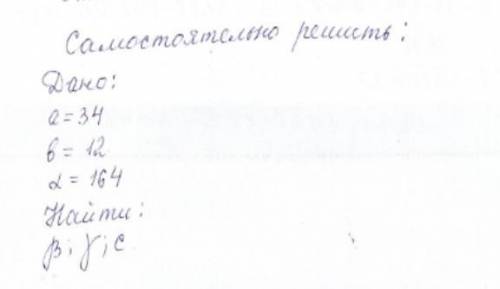 Самостоятельно решить:
Дано:
a = 34
в = 12
α = 164
Найти:
β; γ; c